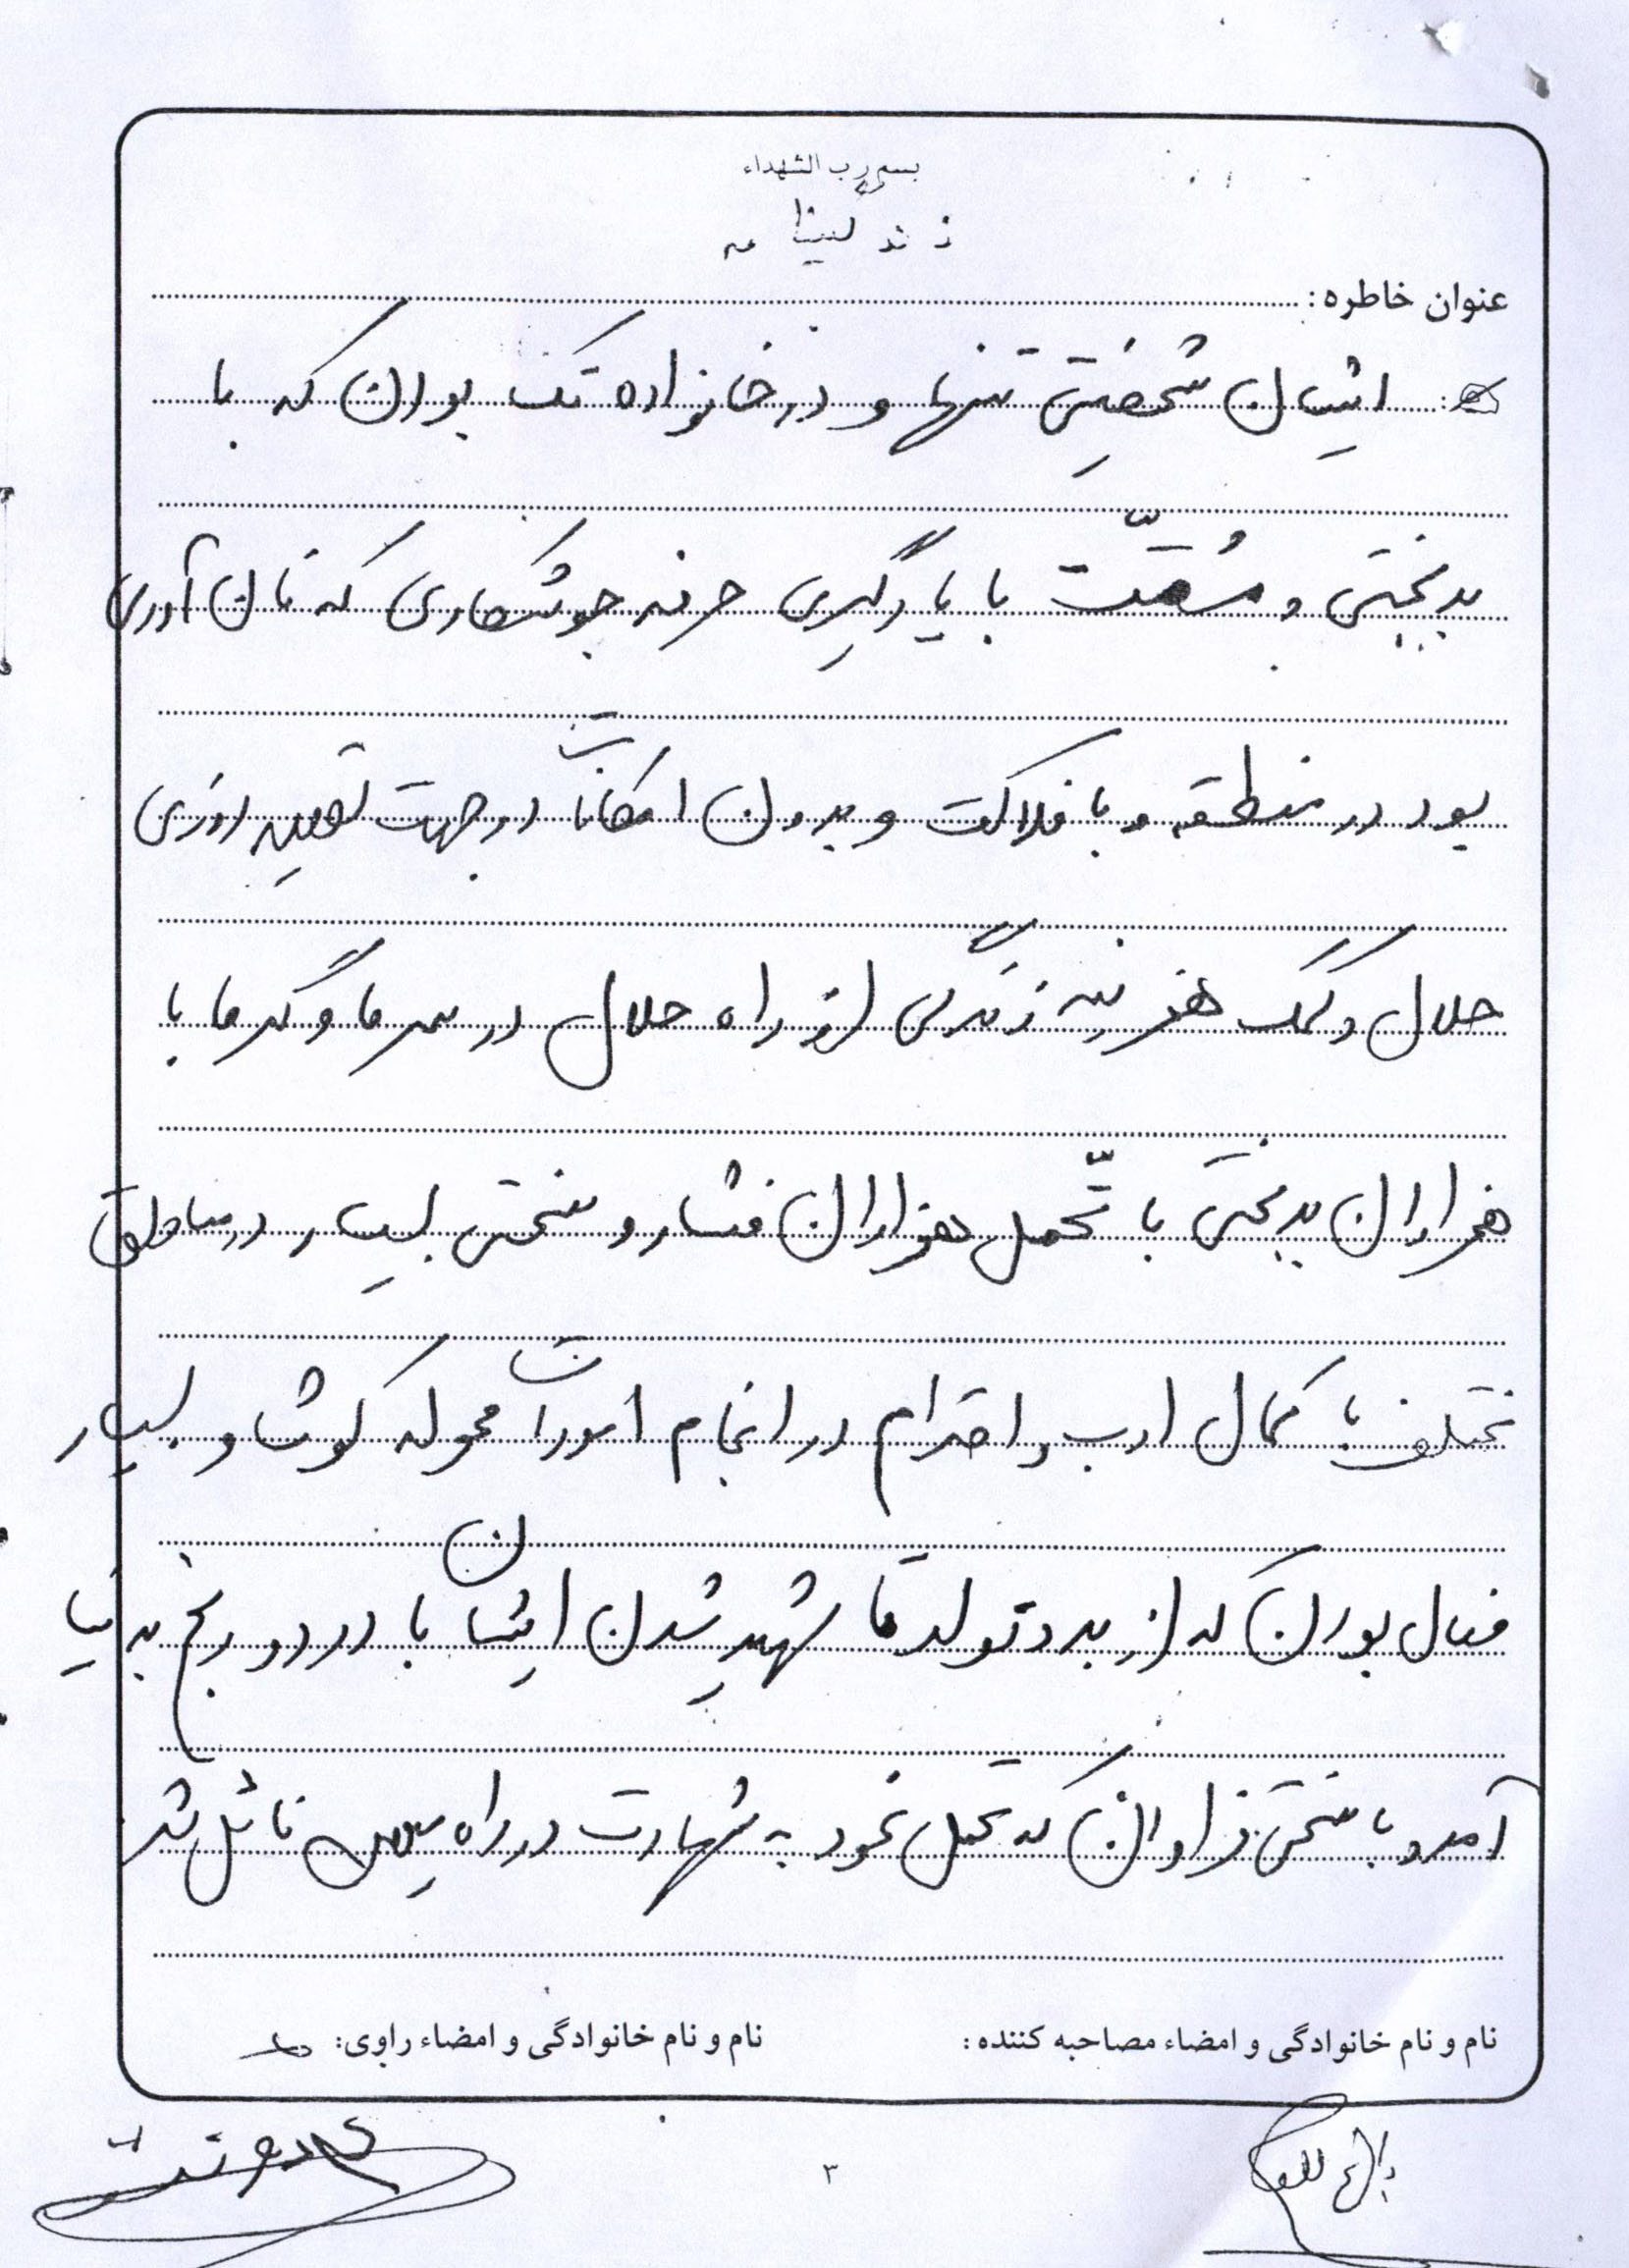 بسم رب الشهداء
زندگینامه
عنوان خاطره:
ایشان شخصیتی تنها و در خانواده تک بودن که با
بدبختی و مشقّت با یادگیری حرفه جوشکاری که نان آوری
بود در منطقه و با فلاکت و بدون امکانات در جهت تعیین روزی
حلال و کمک هزینه زندگی از راه حلال در سرما و گرما با
هزاران بدبختی با تحّمل هزاران فشار و سختی بسیار در مناطق
مختلف با کمال ادب و احترام در انجام امورات محوله کوشا و بسیار
فعال بودن که از بدو تولد تا شهید شدن ایشان با درد و رنج به دنیا
آمد و با سختی فراوان که تحمل نمود به شهادت در راه میهن نائل شد
نام و نام خانوادگی و امضاء مصاحبه کننده: نام و نام خانوادگی و امضاء راوی:
۳